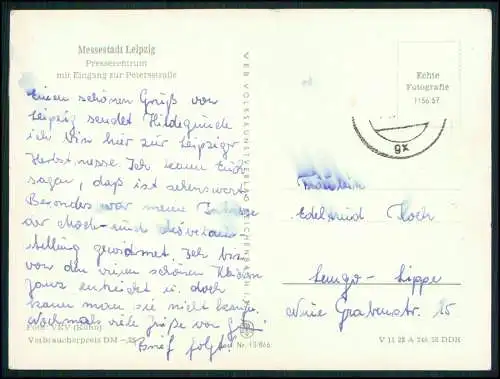 Messestadt Leipzig
Pressezentrum
mit Eingang zur Petersstraße
Einen schönen Gruß von
Leipzig sendet Hildegunde
ich bin hier zur Leipziger
Herbstmesse. Ich kann Euch
sagen, daß ist sehenswert
Besonders war meine
der Mode-
stellung gewidmet. Ich bin
von den vielen schönen Kleidern
ganz entzückt u. doch
kann man sie nicht
Nochmals viele Grüße von
Brief folgt!
Foto: VKV (Kühn)
Verbraucherpreis DM -,25
Best. Nr. 13/866
VEB VOLKSKUNSTVERLAG REICHENBACH
Echte
Fotografie
1156 57
gx
Fräulein
Edeltraud Koch
Lemgo - Lippe
Neue Grabenstr. 15
V 11 28 A 246 58 DDR